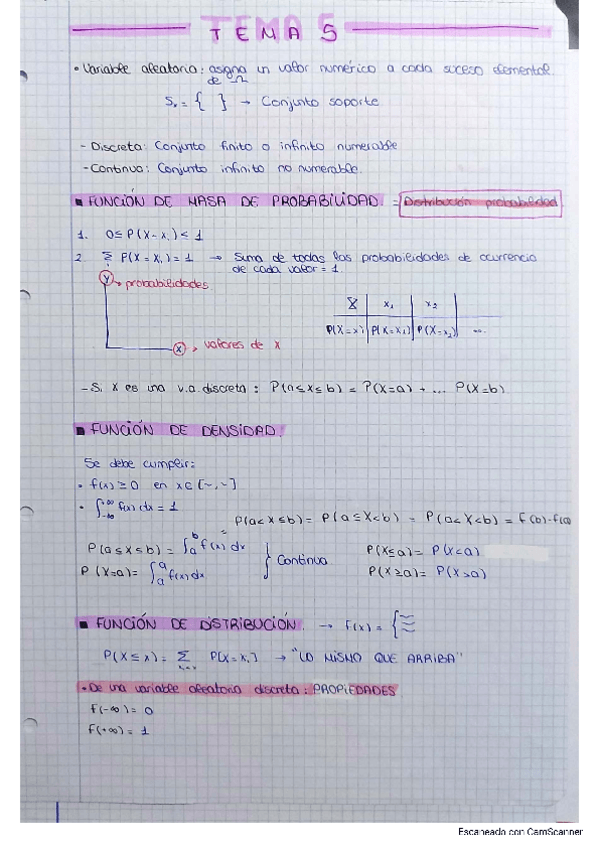 TEMA 5
• Variable aleatoria: asigna un valor numérico a cada suceso elemental
de Ω
Sx = { } → Conjunto soporte
- Discreta: Conjunto finito o infinito numerable
- Continua: Conjunto infinito no numerable.
■ FUNCIÓN DE MASA DE PROBABILIDAD. = Distribución probabilidad
1. 0 ≤ P(X = xi) ≤ 1
2. Σ P(X = xi) = 1 → Suma de todas las probabilidades de ocurrencia
de cada valor = 1.
Y → probabilidades
X x1 x2
P(X=x) P(X=x1) P(X=x2) ...
X → valores de X
- Si X es una v.a. discreta: P(a≤x≤b) = P(X=a) + ... P(X=b)
■ FUNCIÓN DE DENSIDAD.
Se debe cumplir:
• f(x) ≥ 0 en x ∈ [~,~]
• ∫-∞+∞ f(x) dx = 1
P(a<X≤b) = P(a≤X<b) = P(a<X<b) = F(b)-F(a)
P(a≤X≤b) = ∫ab f(x) dx } Continua P(X≤a) = P(X<a)
P(X=a) = ∫aa f(x) dx P(X≥a) = P(X>a)
■ FUNCIÓN DE DISTRIBUCIÓN. → F(x) = {
P(X≤x) = Σ P[X=xi] → "LO MISMO QUE ARRIBA"
• De una variable aleatoria discreta: PROPIEDADES
F(-∞) = 0
F(+∞) = 1
Escaneado con CamScanner